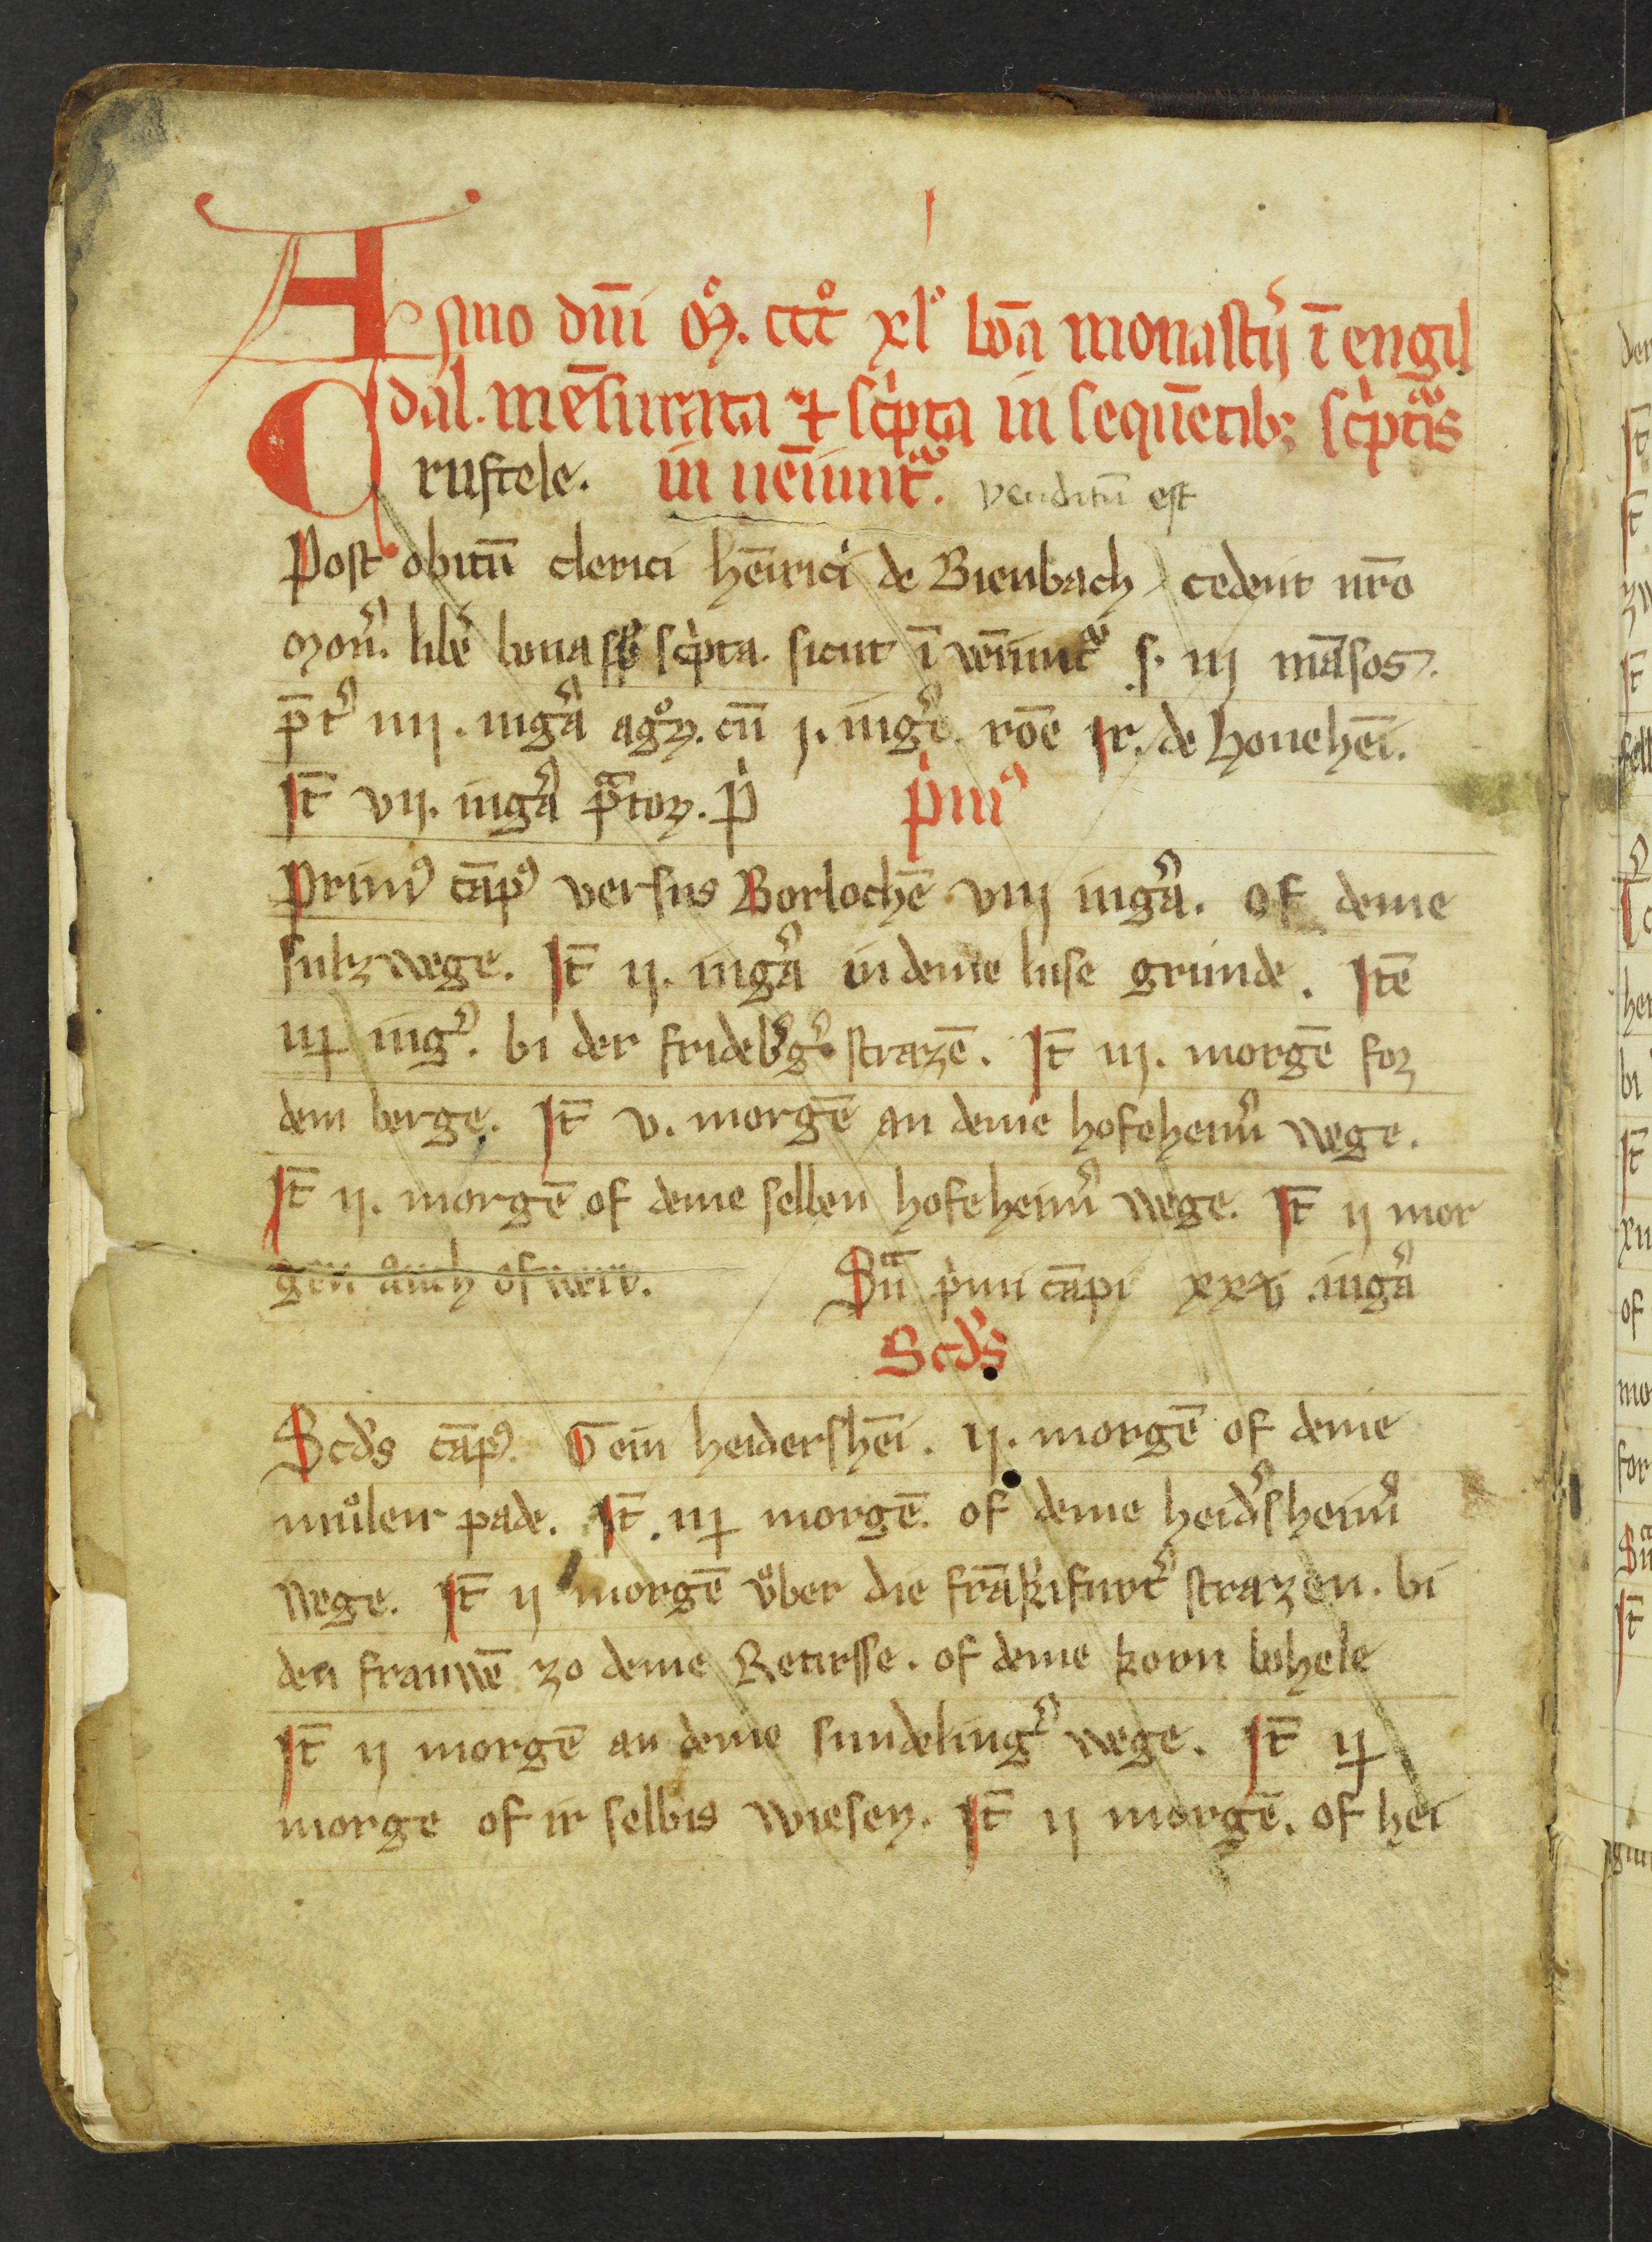 Anno dn̄i M̊. cccͦ xlͦ bōa monast͛ij ī engil
dal. mēsurata ⁊ sc͛pta in sequētibꝫ sc͛ptis
Cruftele. in uēiunt͛. venditū est
Post obitū clerici hēirici de Bienbach cedent nr̄o
Mon͛. lib͛e bona scͥpta. sicut ī vēniunt͛ s. iij māsos.
p̄t͛ iiij. iug͛a agͦꝝ. cū j. iug͛e. rōe Ir. de houehēī.
It̄ vij. iug͛a pᵃtoꝝ. pͥ pͥmꝰ
Primꝰ cāpꝰ versus Borlochē viij iug͛a. of deme
sulzwege. It̄ ij. iug͛a in deme luse grunde. Itē
iij iug͛. bi der frideb͛g͛ strazē. It̄ iij. morgē foꝛ
dem berge. It̄ v. morgē an deme hofeheim͛ wege.
It̄ ij. morgē of deme selben hofeheim͛ wege. It̄ ij mor
gen auch of weir. Sūᵃ pͥmi cāpi xxv iug͛a
Scd͛s
Scd͛s cāpꝰ. Gein heidershēī. ij. morgē of deme
muͦlen pade. It̄. iij morgē. of deme heid͛sheim͛
wege. It̄ ij morgē uͦber die frākifurt͛ strazen. bi
den frauwē zo deme Retirsse. of deme korn bohele
It̄ ij morgē an deme sundeling͛ wege. It̄ ij
morge of ir selbis wiesen. It̄ ij morgē. of hei